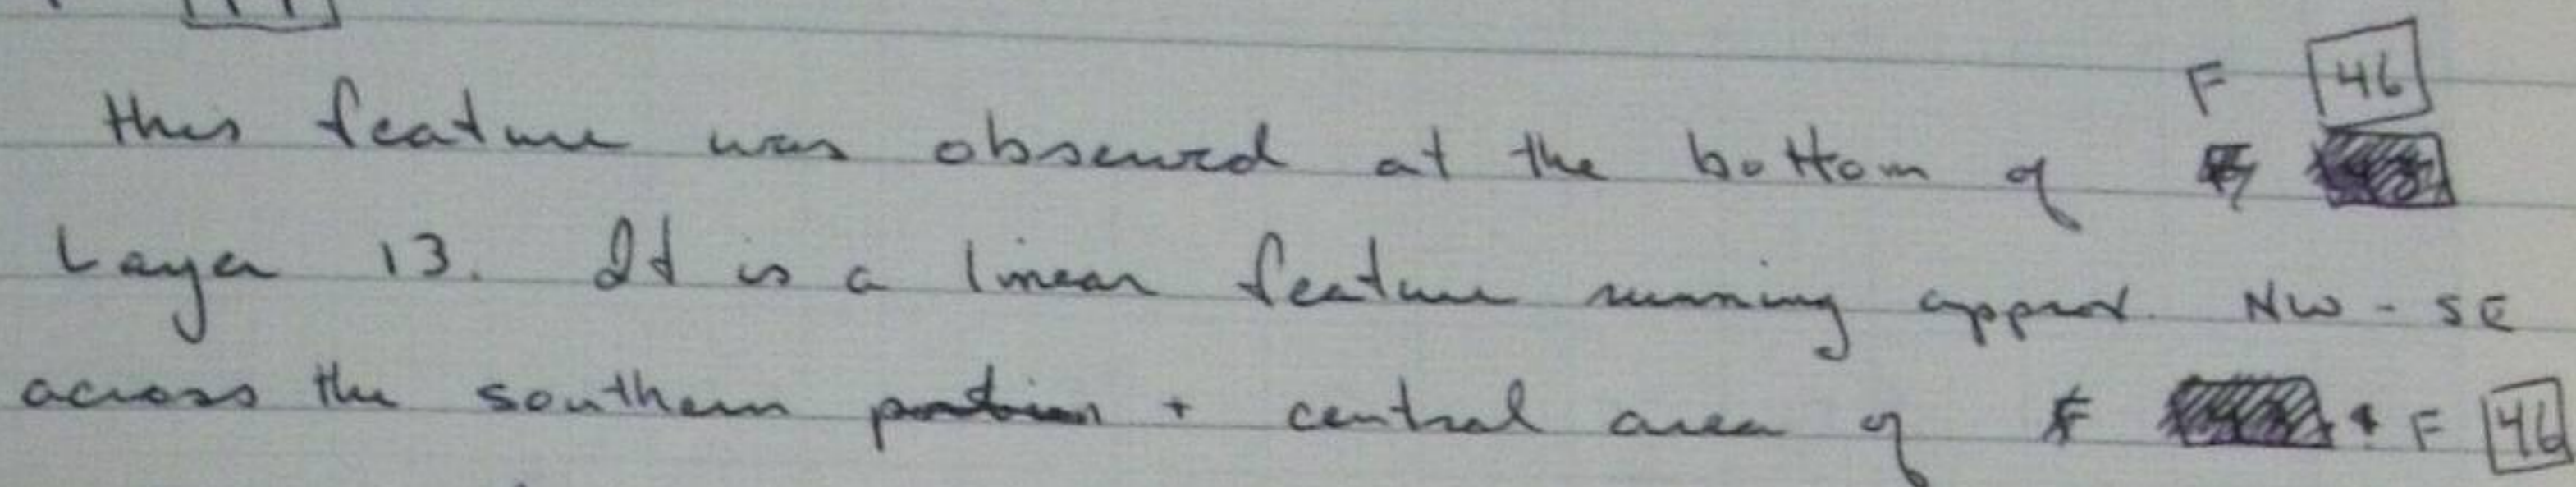 F 46
this feature was observed at the bottom of
Layer 13. It is a linear feature running approx. NW - SE
across the southern portion + central area of F F 46